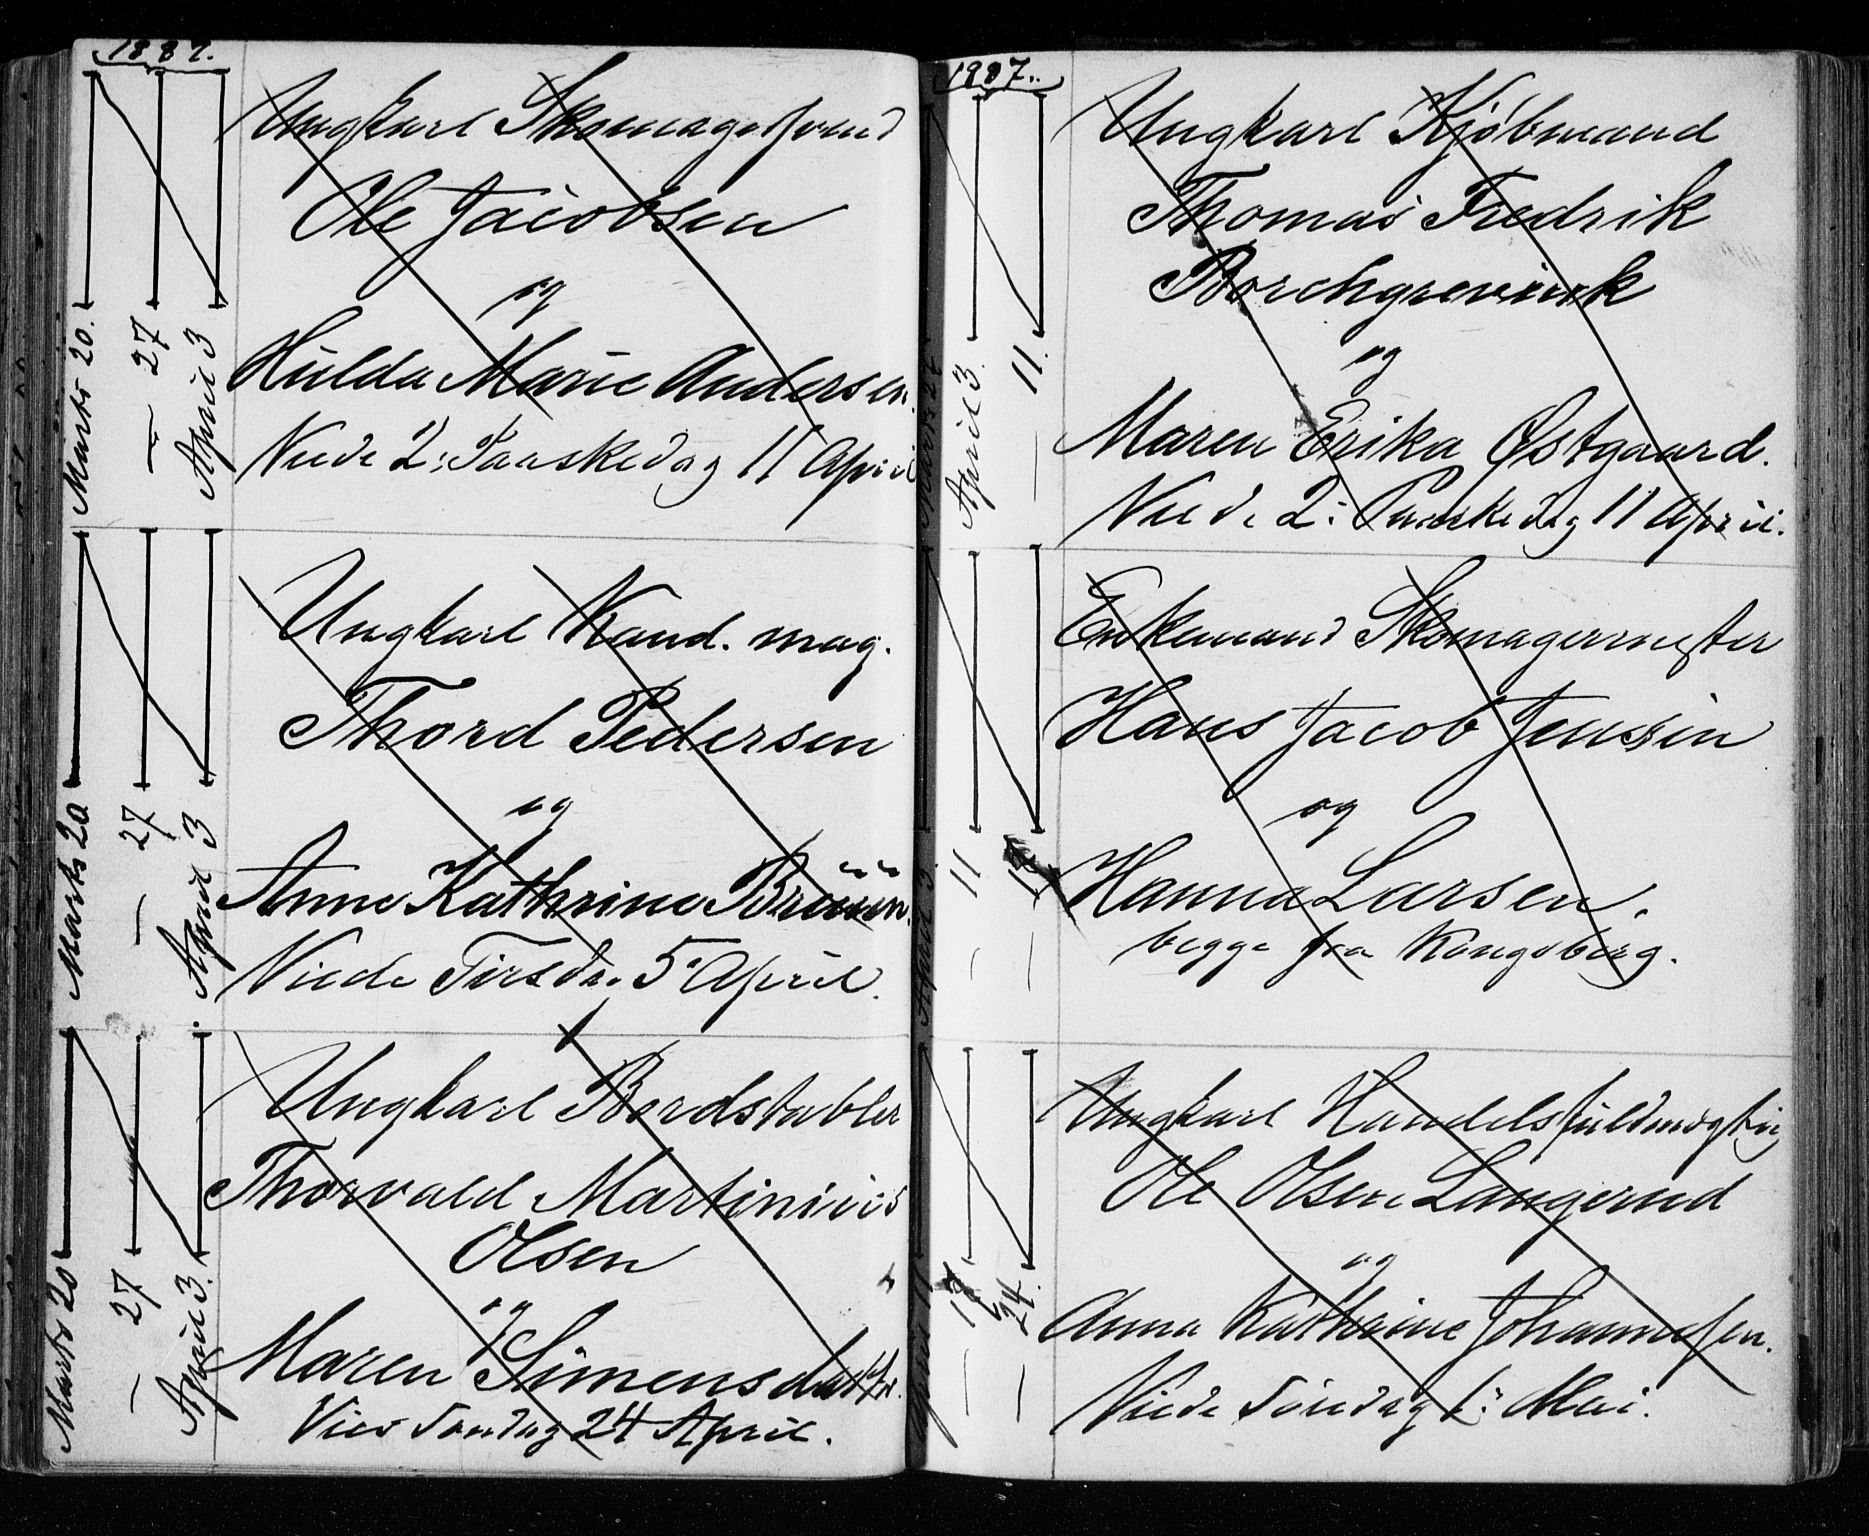 1887.
Marts 20.
— 27
April 3
Ungkarl Skomagersvend
Ole Jacobsen
og
Hulda Marie Andersen.
Viede 2: Paaskedag 11 April
Marts 20
— 27
April 3
Ungkarl Kand. mag.
Thord Pedersen
og
Anne Kathrine Brüün.
Viede Tirsda. 5 April.
Marts 20
— 27
April 3.
Ungkarl Bordstabler
Thorvald Martinius
Olsen
og
Maren Simensdatter.
Vies Søndag 24 April.
1887.
Marts 27
April 3.
— 11.
Ungkarl Kjøbmand
Thomas Fredrik
Borchgrevink
og
Maren Erika Østgaard.
Viede 2: Paaskedag 11 April.
April 3
— 11
— 17
Enkemand Skomagermester
Hans Jacob Jensen
og
Hanna Larsen.
begge fra Kongsberg.
April 11
— 17
— 24.
Ungkarl Handelsfuldmægtig
Ole Olsen Langerud
og
Anna Kathrine Johannesen.
Viede Søndag 1: Mai.